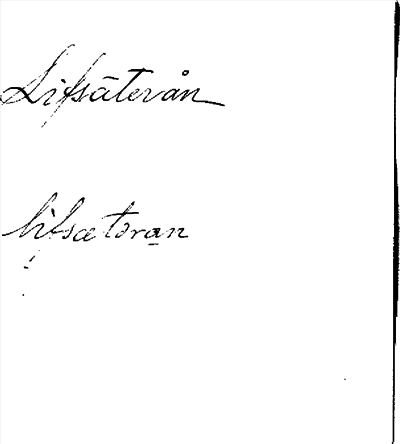 Lifsäterån
lifsætəran